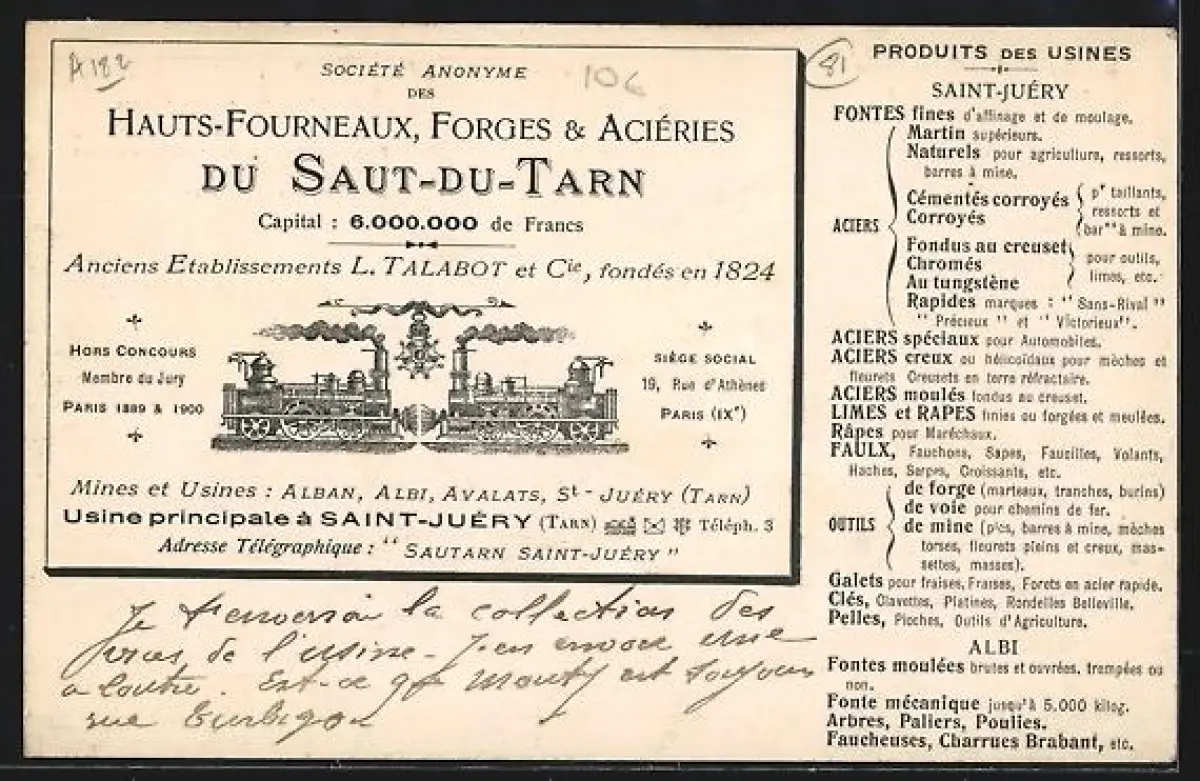 A182
106
81
SOCIÉTÉ ANONYME
DES
HAUTS-FOURNEAUX, FORGES & ACIÉRIES
DU SAUT-DU-TARN
Capital : 6.000.000 de Francs
Anciens Etablissements L. TALABOT et Cie, fondés en 1824
HORS CONCOURS
Membre du Jury
PARIS 1889 & 1900
SIÈGE SOCIAL
19, Rue d'Athènes
PARIS (IXe)
Mines et Usines : ALBAN, ALBI, AVALATS, St-JUÉRY (TARN)
Usine principale à SAINT-JUÉRY (TARN) Téléph. 3
Adresse Télégraphique : " SAUTARN SAINT-JUÉRY "
Je t'enverrai la collection des
vues de l'usine - J'en envoie une
a Est-ce que est toujours
rue Turbigo
PRODUITS DES USINES
SAINT-JUÉRY
FONTES fines d'affinage et de moulage.
ACIERS
Martin supérieurs.
Naturels pour agriculture, ressorts,
barres à mine.
Cémentés corroyés
Corroyés
pr taillants,
ressorts et
barres à mine.
Fondus au creuset
Chromés
Au tungstène
pour outils,
limes, etc.
Rapides marques : " Sans-Rival "
" Précieux " et " Victorieux".
ACIERS spéciaux pour Automobiles.
ACIERS creux ou hélicoïdaux pour mèches et
fleurets Creusets en terre réfractaire.
ACIERS moulés fondus au creuset.
LIMES et RAPES finies ou forgées et meulées.
Râpes pour Maréchaux.
FAULX, Fauchons, Sapes, Faucilles, Volants,
Haches, Serpes, Croissants, etc.
OUTILS
de forge (marteaux, tranches, burins)
de voie pour chemins de fer.
de mine (pics, barres à mine, mèches
torses, fleurets pleins et creux, mas-
settes, masses).
Galets pour fraises, Fraises, Forets en acier rapide.
Clés, Clavettes, Platines, Rondelles Belleville.
Pelles, Pioches, Outils d'Agriculture.
ALBI
Fontes moulées brutes et ouvrées, trempées ou
non.
Fonte mécanique jusqu'à 5.000 kilog.
Arbres, Paliers, Poulies.
Faucheuses, Charrues Brabant, etc.